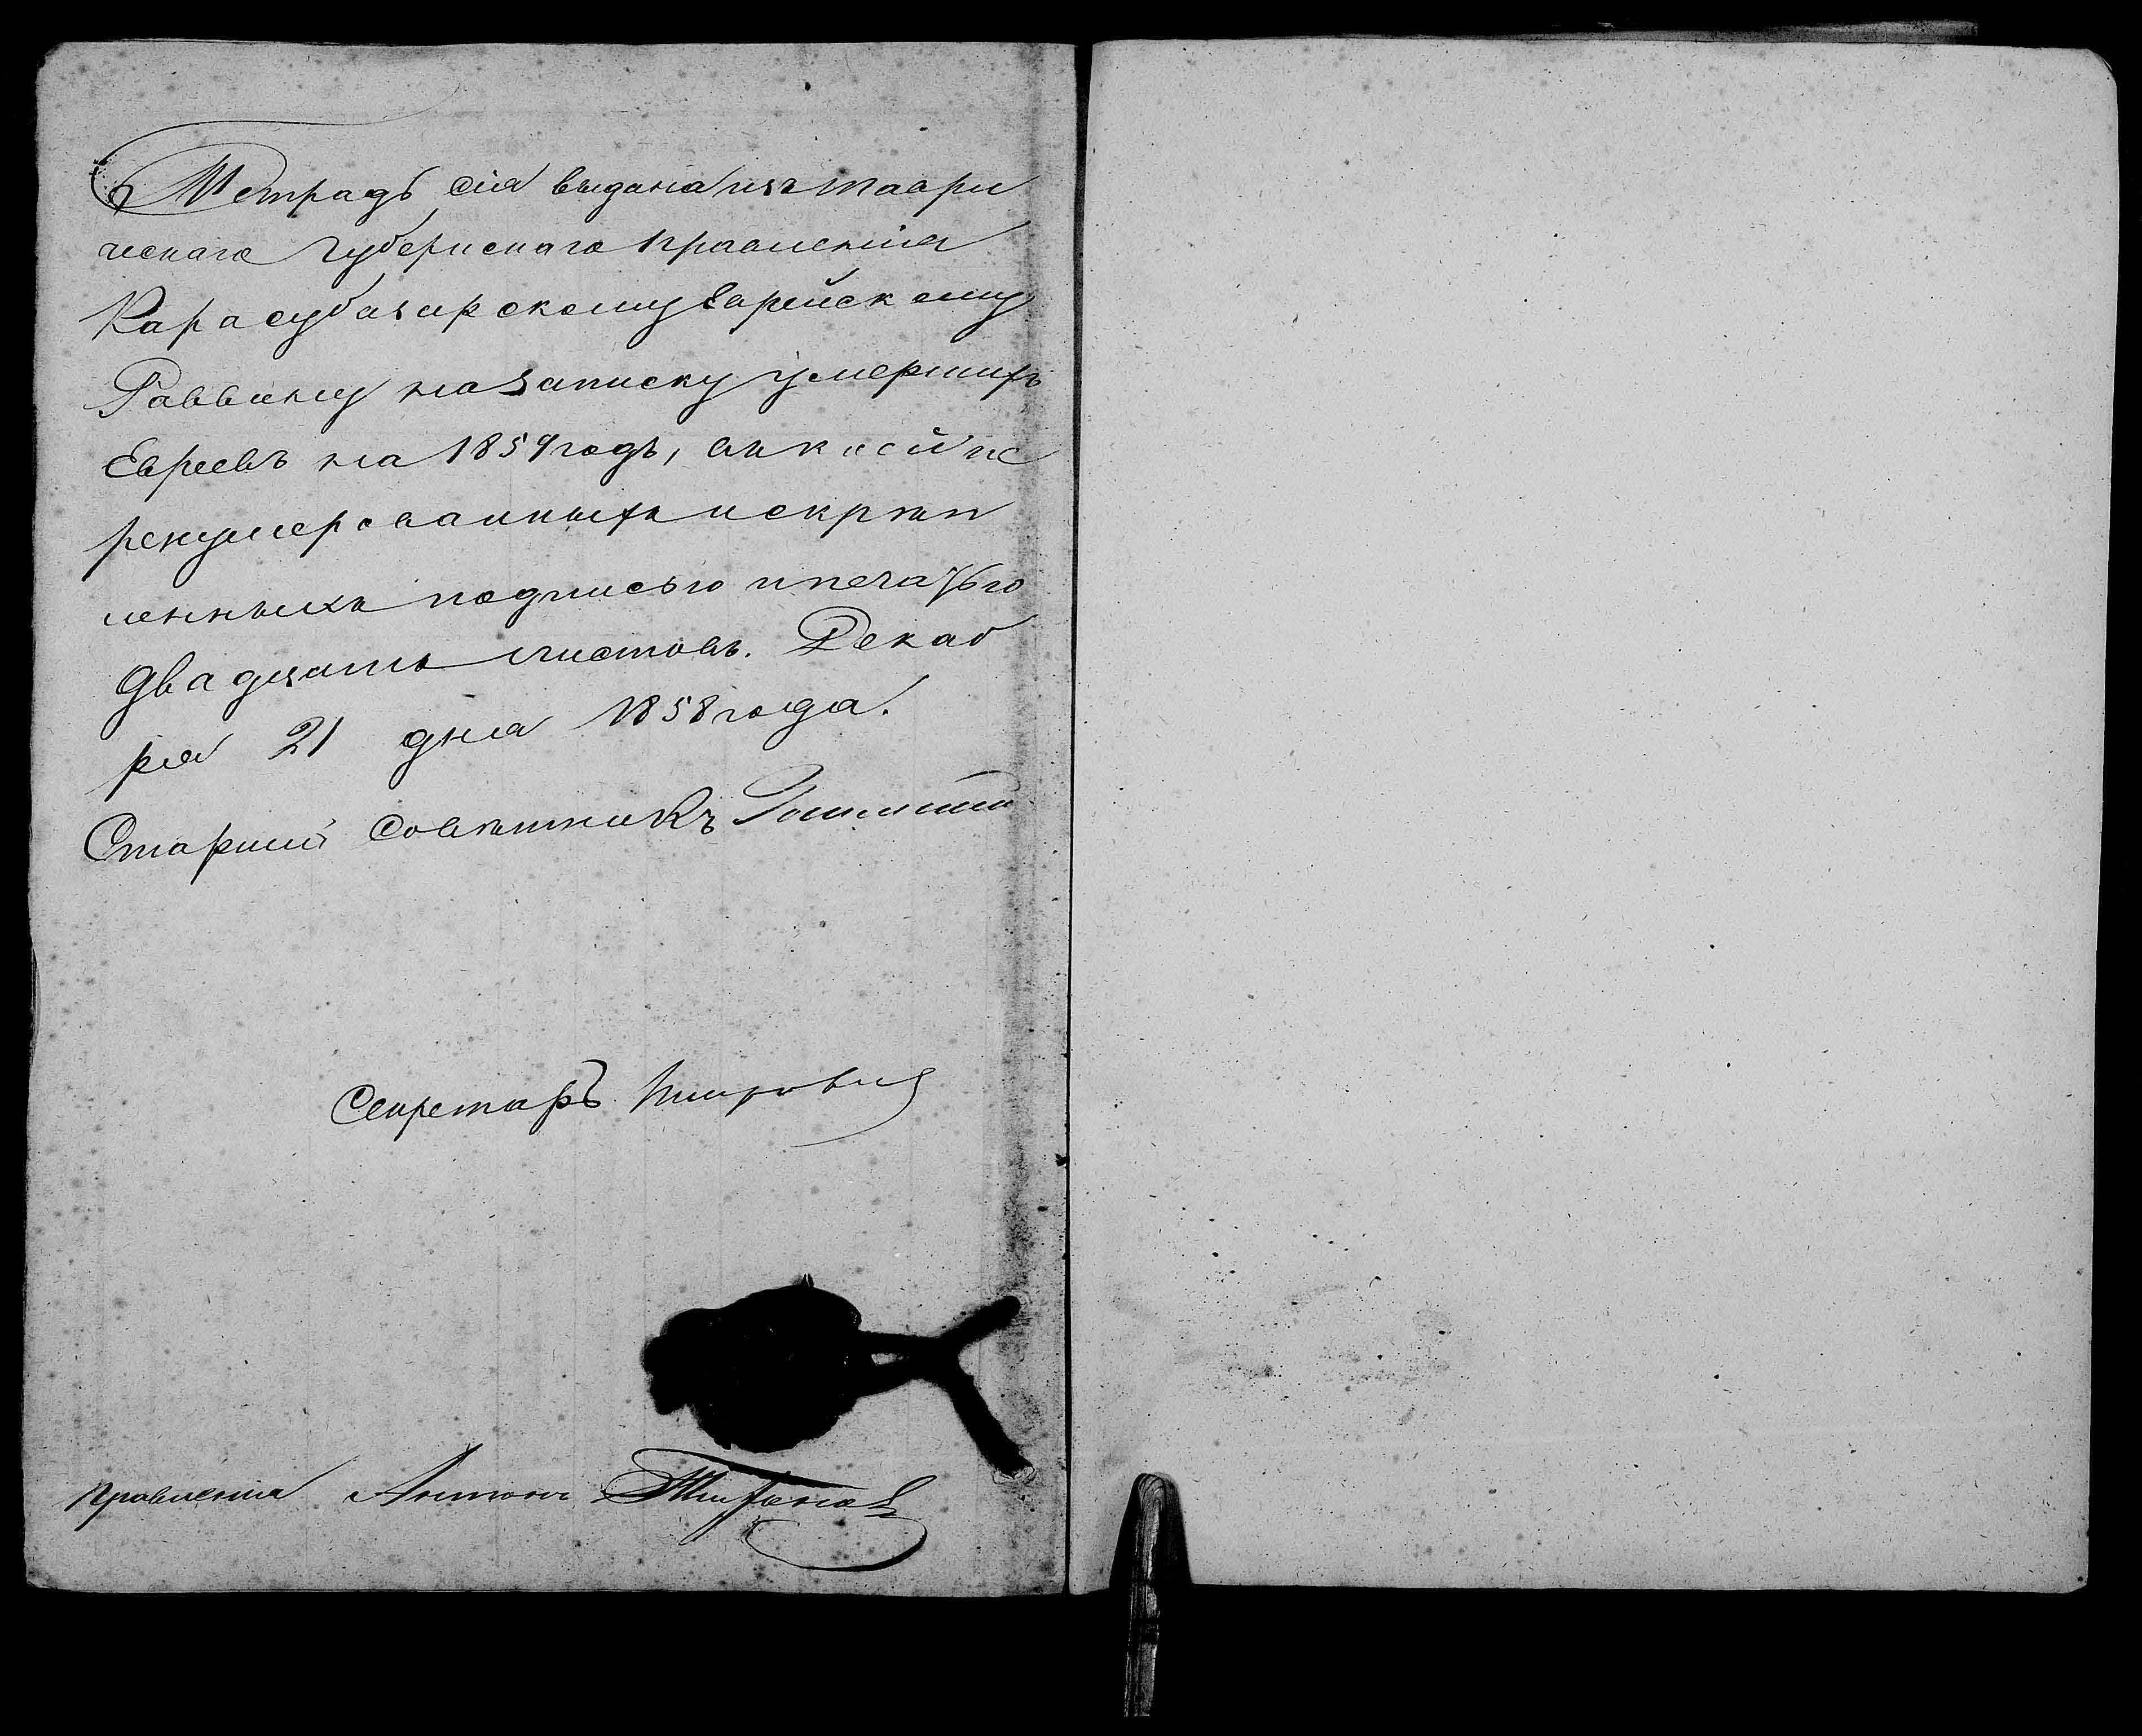 Тетрадь сія выдана изъ Таври
ческаго Губернскаго Правленія
Карасубазарскому Еврейскому
Раввину на записку умершихъ
Евреевъ на 1859 годъ, въ коей пе
ренумерованныхъ и скрѣп
ленныхъ подписью и печатью
двадцать листовъ. Декаб
ря 21 дня 1858 года.
Старшій Совѣтникъ
Секретарь
Правленія Антонъ